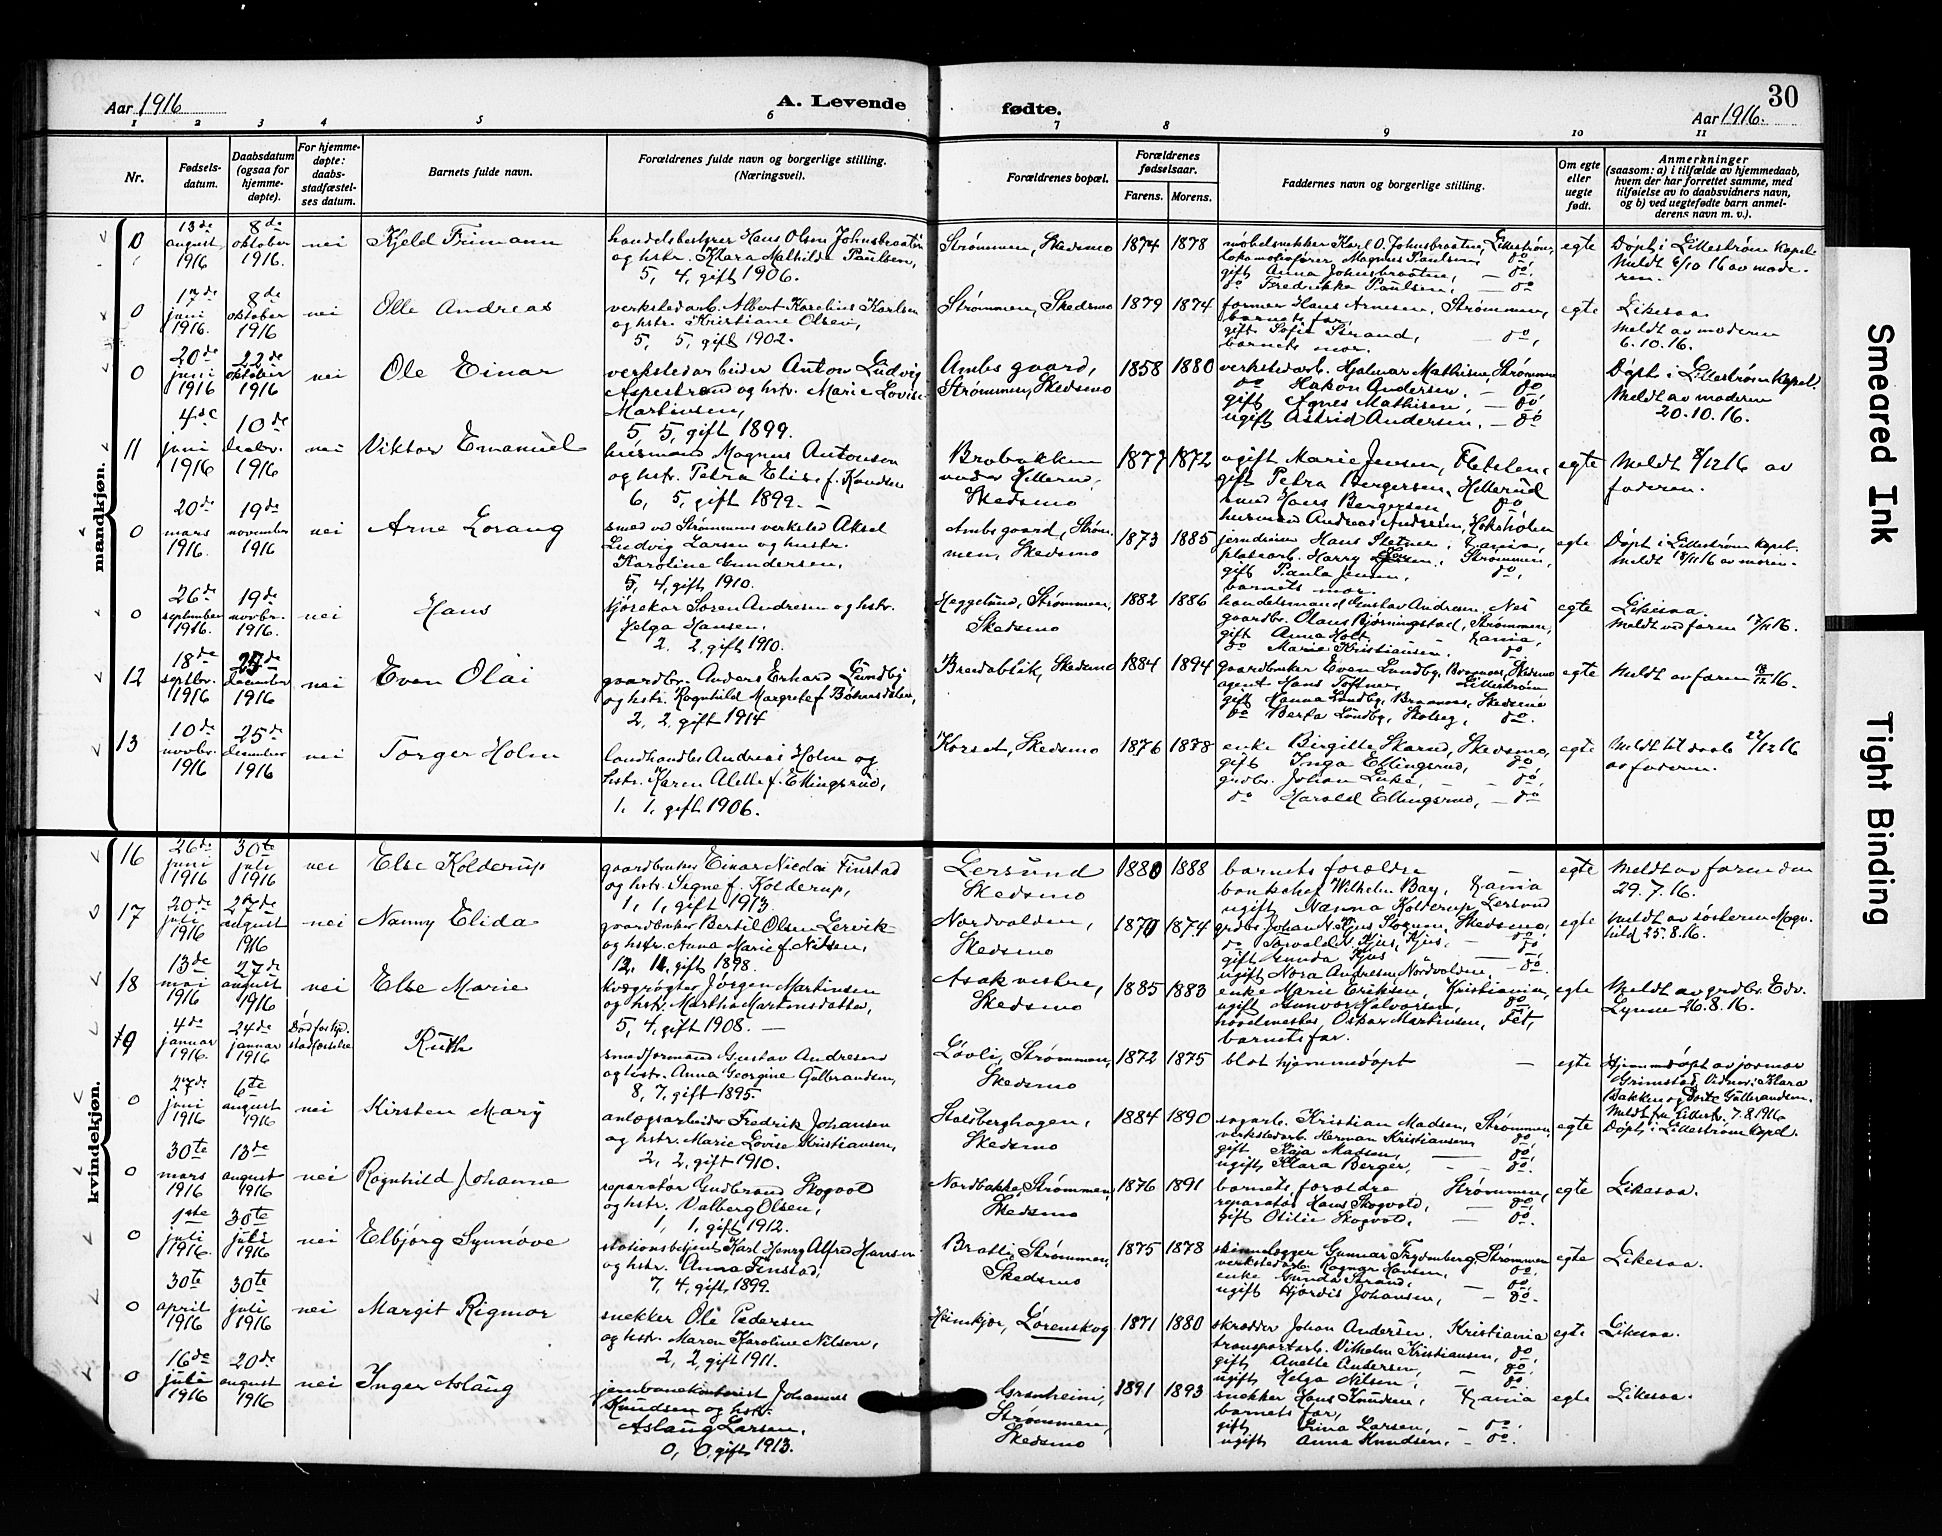 Aar 1916
A. Levende
fødte.
30
Aar 1916.
1 2 3 4 5 6 7 8 9 10 11
Nr.
Fødsels-
datum.
Daabsdatum
(ogsaa for
hjemme-
døpte).
For hjemme-
døpte:
daabs-
stadfæstel-
ses datum.
Barnets fulde navn.
Forældrenes fulde navn og borgerlige stilling.
(Næringsvei).
Forældrenes bopæl.
Forældrenes
fødselsaar.
Farens. Morens.
Faddernes navn og borgerlige stilling.
Om egte
eller
uegte
født.
Anmerkninger
(saasom: a) i tilfælde av hjemmedaab,
hvem der har forrettet samme, med
tilføielse av to daabsvidners navn,
og b) ved uegtefødte barn anmel-
derens navn m. v.).
mandkjøn.
0
13de
august
1916
8de
oktober
1916.
nei
Kjeld Frimann
handelsbestyrer Hans Olsen Johnsbraaten
og hstr. Klara Mathilde Paulsen,
5, 4, gift 1906.
Strømmen, Skedsmo
1874 1878
møbelsnekker Karl O. Johnsbraaten, Lillestrøm,
lokomotivfører Magnus Paulsen, do,
gift Anna Johnsbraaten, — do,
do Fredrikka Paulsen, — do
egte
Døpt i Lillestrøm kapel.
Meldt 6/10 16 av mode-
ren.
0
17de
juni
1916.
8de
oktober
1916
nei
Olle Andreas
verkstedarb. Albert Kornelius Karlsen
og hstr. Kristiane Olsen,
5, 5, gift 1902.
Strømmen, Skedsmo
1879 1874
former Hans Arnesen, Strømmen,
barnets far,
gift Sofie Strand, — do,
barnets mor.
egte
Likesaa.
Meldt av moderen
6.10.16.
0
20de
juni
1916
22de
oktober
1916
nei
Ole Einar
verkstedarbeider Anton Ludvig
Aspestrand og hstr. Marie Lovise
Martinsen,
5, 5, gift 1899.
Ambs gaard,
Strømmen, Skedsmo
1858 1880
verkstedarb. Hjalmar Mathisen, Strømmen
do Hakon Andersen, — do,
gift Agnes Mathisen, — do,
ugift Astrid Andersen, — do
Døpt i Lillestrøm kapel.
Meldt av moderen
20.10.16.
11
4de
juni
1916
10de
decbr.
1916
nei
Viktor Emanuel
husmand Magnus Antonsen
og hstr. Petra Elise f. Knudsen
6, 5, gift 1899. —
Brobakken
under Hillerud,
Skedsmo
1877 1872
ugift Marie Jensen, Fletelen,
gift Petra Bergersen, Hillerud
smed Hans Bergersen do
husmand Andreas Andersen,
egte
Meldt 8/12 16 av
faderen.
0
20de
mars
1916.
19de
november
1916
nei
Arne Lorang
smed ved Strømmens verksted Aksel
Ludvig Larsen og hustr.
Karoline Gundersen,
5, 4, gift 1910.
Ambs gaard, Strøm-
men, Skedsmo
1873 1885
jerndreier Hans Sletner, Krania,
platearb. Harry Strømmen,
gift Paula Jensen, do,
barnets mor.
egte
Døpt i Lillestrøm kapel.
Meldt 18/11 16 av moren.
0
26de
september
1916.
19de
novbr.
1916.
nei
Hans
kjørekar Søren Andresen og hstr.
Helga Hansen.
2, 2, gift 1910.
Heggelund, Strømmen,
Skedsmo
1882 1886
handelsmand Gustav Andresen, Nes
gaardbr. Olaus Bjørningstad, Strømmen,
gift Anna Holt, Krania,
do Marie Kristiansen, do
egte
Likesaa.
Meldt ved faren 17/11 16.
12
18de
septbr.
1916
25de
december
1916
nei
Even Olai
gaardbr. Anders Erhard Lundby
og hstr. Ragnhild Margrete f. Bakersdalen,
2, 2, gift 1914
Breidablik, Skedsmo
1884 1894
gaardbruker Even Lundby, Braanaas, Skedsmo
agent Hans Toftner, Lillestrøm
gift Hanna Lundby, Braanaas, Skedsmo
do Berta Lundby, Skolseg, do.
egte
Meldt av faren 18/12 16.
13
10de
novbr.
1916
25de
desember
1916
nei
Torger Holm
landhandler Andreas Holm og
hstr. Karen Alette f. Ellingsrud,
1, 1, gift 1906.
Korset, Skedsmo
1876 1878
enke Birgitte Skarud, Skedsmo,
gift Inga Ellingsrud, do
grdbr. Johan Luke, — do,
do Harald Ellingsrud, — do
egte
Meldt til daab 22/12 16
av faderen.
kvindekjøn.
16
26de
juni
1916
30te
juli
1916
nei
Else Kolderup
gaardbruker Einar Nicolai Finstad
og hstr. Signe f. Kolderup,
1, 1, gift 1913.
Lersund
Skedsmo
1880 1888
barnets forældre —
bankchef Wilhelm Bay, Krania
ugift Nanna Kolderup Lersund
egte
Meldt av faren den
29.7.16.
17
20de
juli
1916
27de
august
1916
nei
Nanny Elida
gaardbruker Bertil Olsen Lervik
og hstr. Anna Marie f. Nilsen,
12, 11, gift 1898.
Nordvolden,
Skedsmo
1870 1874
grdbr. Johan N. Kjus Skedsmo,
do Torvald N. Kjus, Kjus, — do,
gift Gunda Kjus — do
ugift Nora Andresen, Nordvolden, — do.
egte
Meldt av søsteren Magn-
hild 25.8.16.
18
13de
mai
1916
27de
august
1916
nei
Else Marie
kvægrøgter Jørgen Martinsen
og hstr. Martha Martonsdatter,
5, 4, gift 1908. —
Asak vestre,
Skedsmo
1885 1883
enke Marie Eriksen, Kristiania,
ugift Gunvor Halvorsen, do,
hovdmester Oskar Martinsen, Fet,
barnets far.
egte
Meldt av grdbr. Edv.
Lynne 26.8.16.
19
4de
januar
1916.
24de
januar
1916
Død før kp.
stadfæstelse
Ruth
smedformand Gustav Andresen
og hstr. Anna Georgine Gulbrandsen,
8, 7, gift 1895.
Løvli, Strømmen,
Skedsmo
1872 1875
blot hjemmedøpt —
egte
Hjemmedøpt av jormor
Grimstad. Vidner: Klara
Bakken og Dorte Gulbrandsen.
Meldt fra Lillestr. 7.8.1916
0
27de
juni
1916
6te
august
1916
nei
Kirsten Mary
anlægsarbeider Fredrik Johansen
og hstr. Marie Lovise Kristiansen,
2, 2, gift 1910.
Stalsberghagen,
Skedsmo
1884 1890
sagarb. Kristian Madsen, Strømmen,
verkstedarb. Herman Kristiansen, do,
gift Kaja Madsen, — do,
ugift Klara Berger, — do.
egte
Døpt i Lillestrøm kapel.
0
30te
mars
1916
13de
august
1916
nei
Ragnhild Johanne
reparatør Gudbrand Skogvold
og hstr. Valberg Olsen,
1, 1, gift 1912.
Nordbakke, Strømmen,
Skedsmo
1876 1891
barnets forældre Strømmen,
reparatør Hans Skogvold, — do,
gift Otilie Skogvold, — do.
egte
Likesaa.
0
1ste
juli
1916.
30te
juli
1916
nei
Elbjørg Synnøve
stationsbetjent Karl Henry Alfred Hansen
og hstr. Anna Finstad,
7, 4, gift 1899.
Bratli, Strømmen,
Skedsmo
1875 1878
skinnelægger Gunnar Frydenberg, Strømmen
verkstedarb. Ragnar Hansen, do,
enke Gunda Strand, — do,
ugift Hjørdis Johansen, — do.
egte
Likesaa.
0
30te
april
1916
30te
juli
1916
nei
Margit Rigmor
snekker Ole Pedersen
og hstr. Maren Karoline Nilsen,
2, 2, gift 1911.
Heimkjær, Lørenskog
1871 1880
skrædder Johan Andersen, Kristiania
transportarb. Vilhelm Kristiansen, do,
gift Anette Andersen, do,
ugift Helga Nilsen, do
egte
Likesaa.
0
16de
juli
1916
20de
august
1916
nei
Inger Aslaug
jernbanekontorist Johannes
Knudsen og hstr.
Aslaug Larsen,
0, 0, gift 1913.
Granheim,
Strømmen,
Skedsmo
1891 1893
snekker Hans Knudsen, Krania
barnets far,
gift Trina Larsen, — do.
ugift Anna Knudsen, — do.
egte
Likesaa.
Smeared Ink
Tight Binding